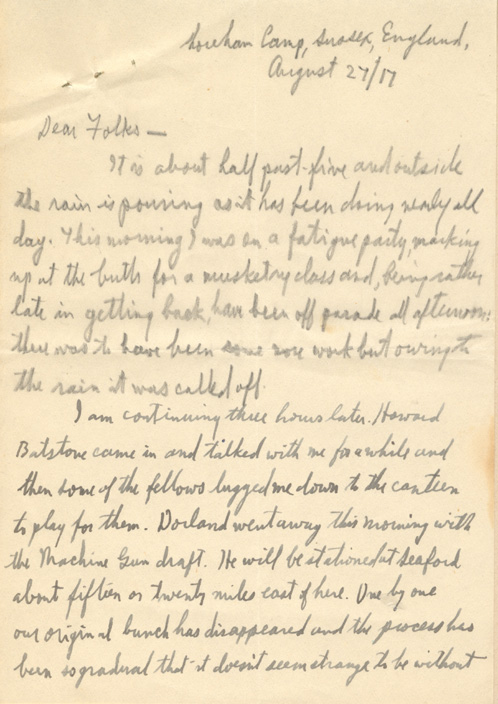 Shoreham Camp, Sussex, England,
August 27/17
Dear Folks —
It is about half past-five and outside
the rain is pouring as it has been doing nearly all
day. This morning I was on a fatigue party, marking
up at the butts for a musketry class and, being rather
late in getting back, have been off parade all afternoon:
there was to have been some more work but owing to
the rain it was called off.
I am continuing three hours later. Howard
Batstone came in and talked with me for a while and
then some of the fellows lugged me down to the canteen
to play for them. Dorland went away this morning with
the Machine Gun draft. He will be stationed at Seaford
about fifteen or twenty miles east of here. One by one
our original bunch has disappeared and the process has
been so gradual that it doesn't seem strange to be without